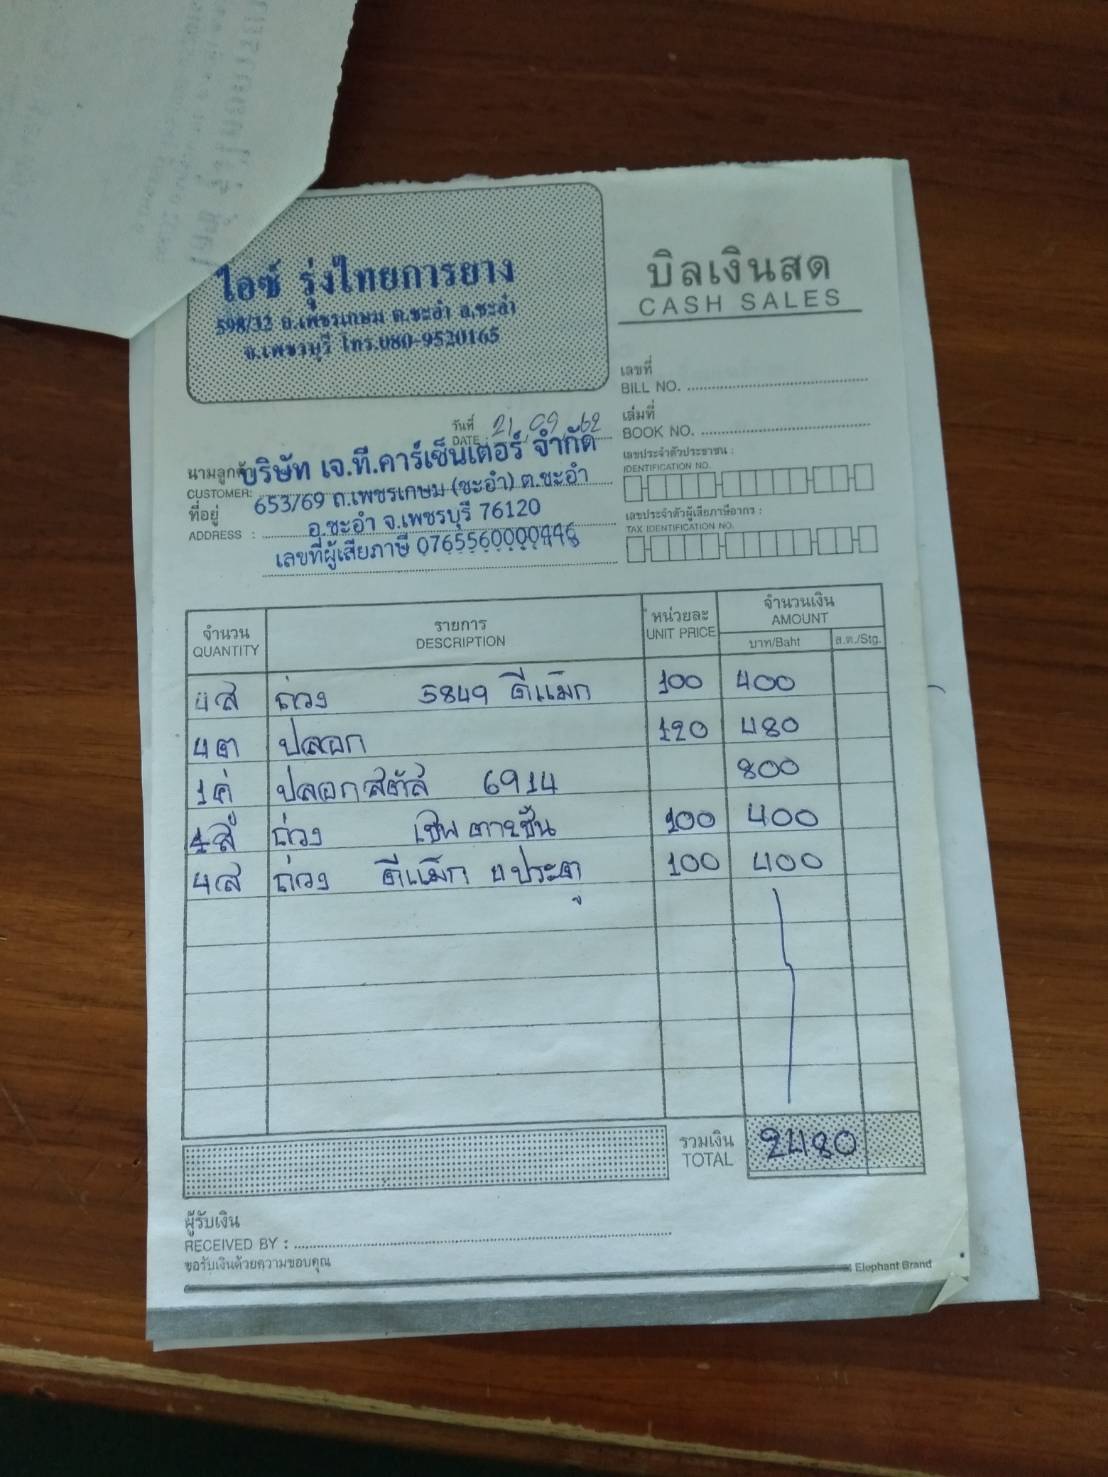 ไอซ์ รุ่งไทยการยาง
598/32 ถ.เพชรเกษม ต.ชะอำ อ.ชะอำ
จ.เพชรบุรี โทร.080-9520165
บิลเงินสด
CASH SALES
เลขที่
BILL NO.
เล่มที่
BOOK NO.
วันที่ 21 / 09 / 62
DATE
นามลูกค้า บริษัท เจ.ที.คาร์เซ็นเตอร์ จำกัด
CUSTOMER: 653/69 ถ.เพชรเกษม (ชะอำ) ต.ชะอำ
ที่อยู่ อ.ชะอำ จ.เพชรบุรี 76120
ADDRESS : เลขที่ผู้เสียภาษี
เลขประจำตัวประชาชน :
IDENTIFICATION NO.
เลขประจำตัวผู้เสียภาษีอากร :
TAX IDENTIFICATION NO.
จำนวน รายการ หน่วยละ จำนวนเงิน
QUANTITY DESCRIPTION UNIT PRICE AMOUNT
บาท/Baht ส.ต./Stg.
4 ส ถ่วง 5849 ดีแม็ก 100 400
4 ต ปลอก 120 480
1 คู่ 6914 800
ถ่วง 100 400
4 ส ถ่วง ดีแม็ก 4 ประตู 100 400
รวมเงิน 2480
TOTAL
ผู้รับเงิน
RECEIVED BY :
ขอรับเงินด้วยความขอบคุณ
Elephant Brand